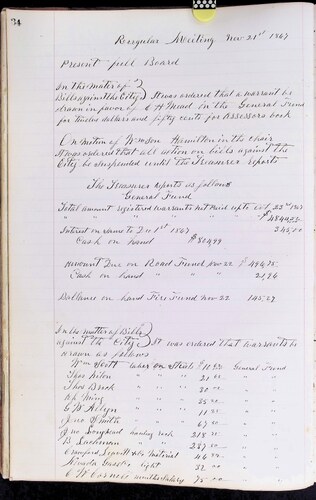 34
Regular Meeting Nov 21st 1867
Present full Board
In the matter of
Bills against the City } It was ordered that a warrant be
drawn in favor of C H Mead in the General Fund
for twelve dollars and fifty cents for Assessors book
On Motion of Wmson Hamilton in the chair
it was ordered that all action on bills against the
City be suspended until the Treasurer reports
The Treasurer reports as follows
General Fund
Total amount registered warrants not paid up to oct 22nd 1867
Interest on same to Dec 1st 1867 245,00
Cash on hand $804,99
Amount Due on Road Fund Nov 22 $ 494,75
Cash on hand " " " 21,74
Ballance on hand Fire Fund Nov 22 145,27
In the matter of Bills
against the City } It was ordered that warrants be
drawn as follows
Wm Scott labor on Streets $ General Fund
Thos " " " 21 00 "
Thos Brook " " " 20 "
" " " 25 "
G W Allyn " " " "
Jno Smith " " " 67 00 "
Jno hauling rock 218 "
B Lachman " " 287 00 "
Material 46 "
Nevada Gas Co light 32 00 "
C W 75 00 "